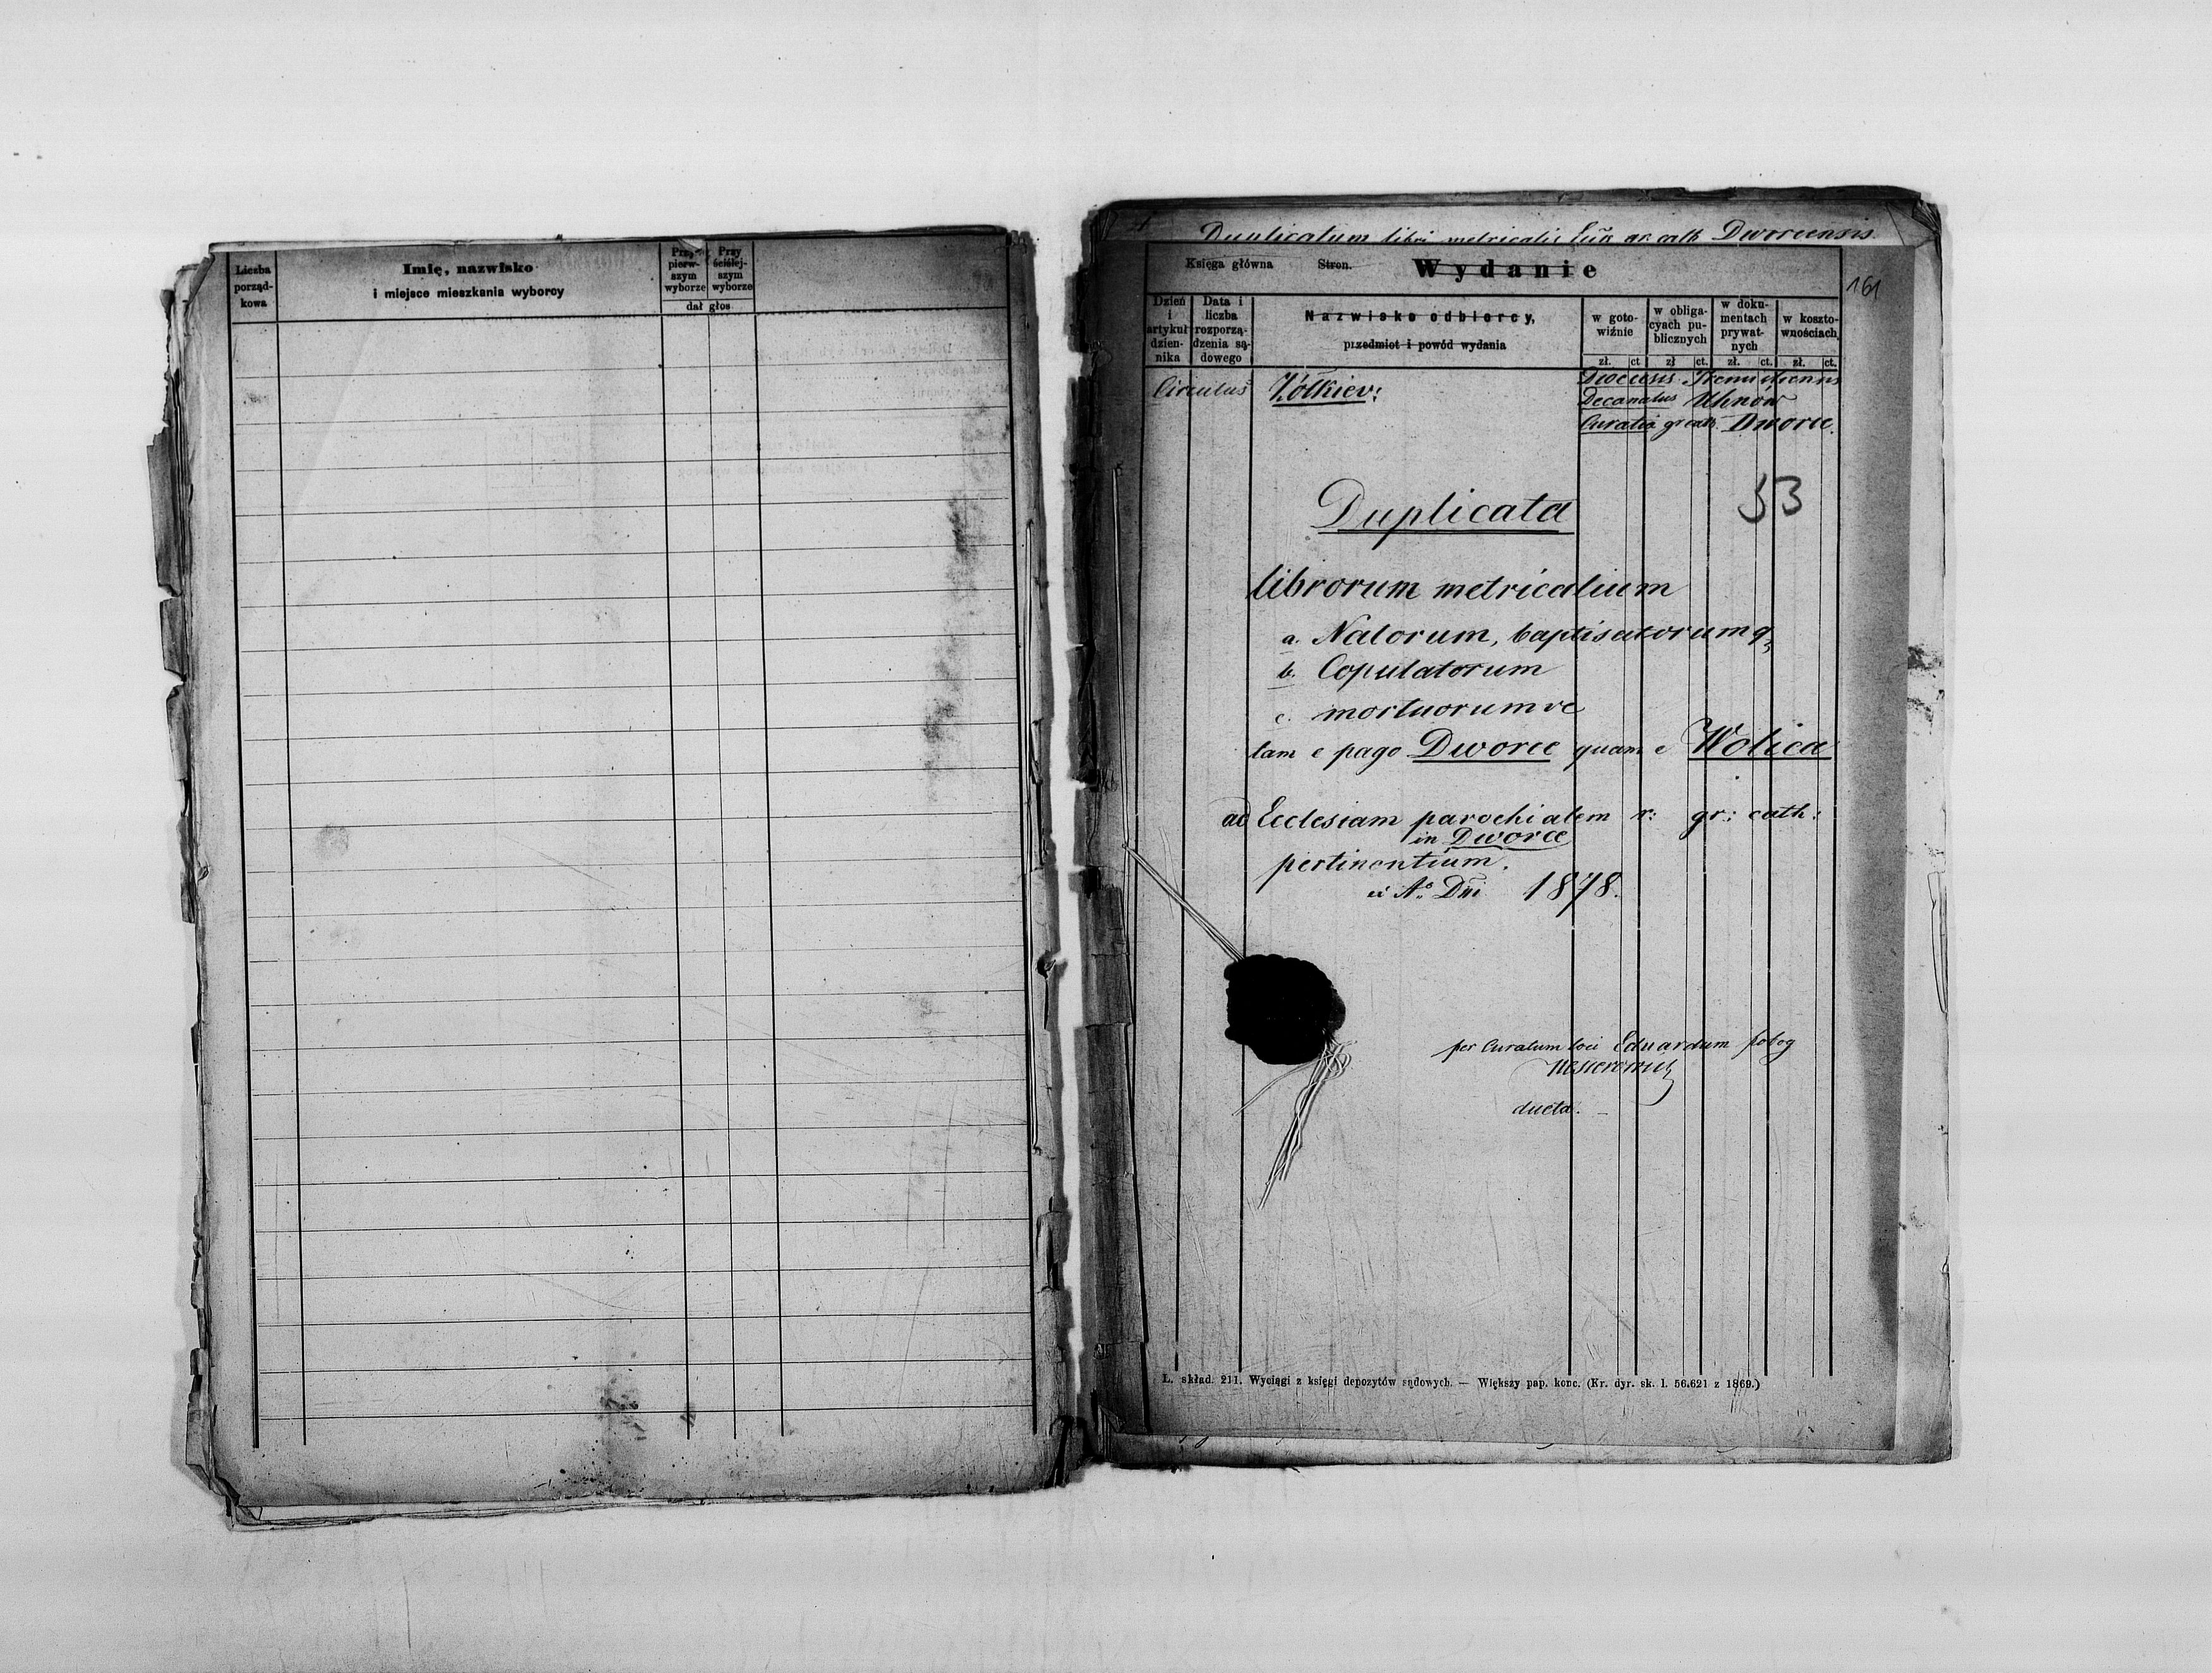 Liczba
porząd-
kowa
Imię, nazwisko
i miejsce mieszkania wyborcy
Przy
pierw-
szym
wyborze
Przy
ściślej-
szym
wyborze
dał głos
Duplicatum libri metricalis gr cath Dworcensis.
161
Księga główna Stron. Wydanie
Dzień
i
artykuł
dzien-
nika
Data i
liczba
rozporzą-
dzenia są-
dowego
Nazwisko odbiorcy,
przedmiot i powód wydania
w goto-
wiźnie
w obliga-
cyach pu-
blicznych
w doku-
mentach
prywat-
nych
w koszto-
wnościach
zł. ct zł ct. zł. ct. zł. ct.
Circulus Żółkiev:
Dioecesis
Decanatus Uhnów
Curatia gr cath. Dworce.
53
Duplicata
librorum metricalium
a. Natorum, baptisatorumq
b. Copulatorum
c. mortuorumve
tam e pago Dworce quam e Wolica
ad Ecclesiam parochialem r: gr: cath:
in Dworce
pertinentium.
Aº Dni 1878.
per Curatum loci Eduardum
ducta. —
L. skład. 211. Wyciągi z księgi depozytów sądowych. — Większy pap. konc. (Kr. dyr. sk. l. 56.621 z 1869.)